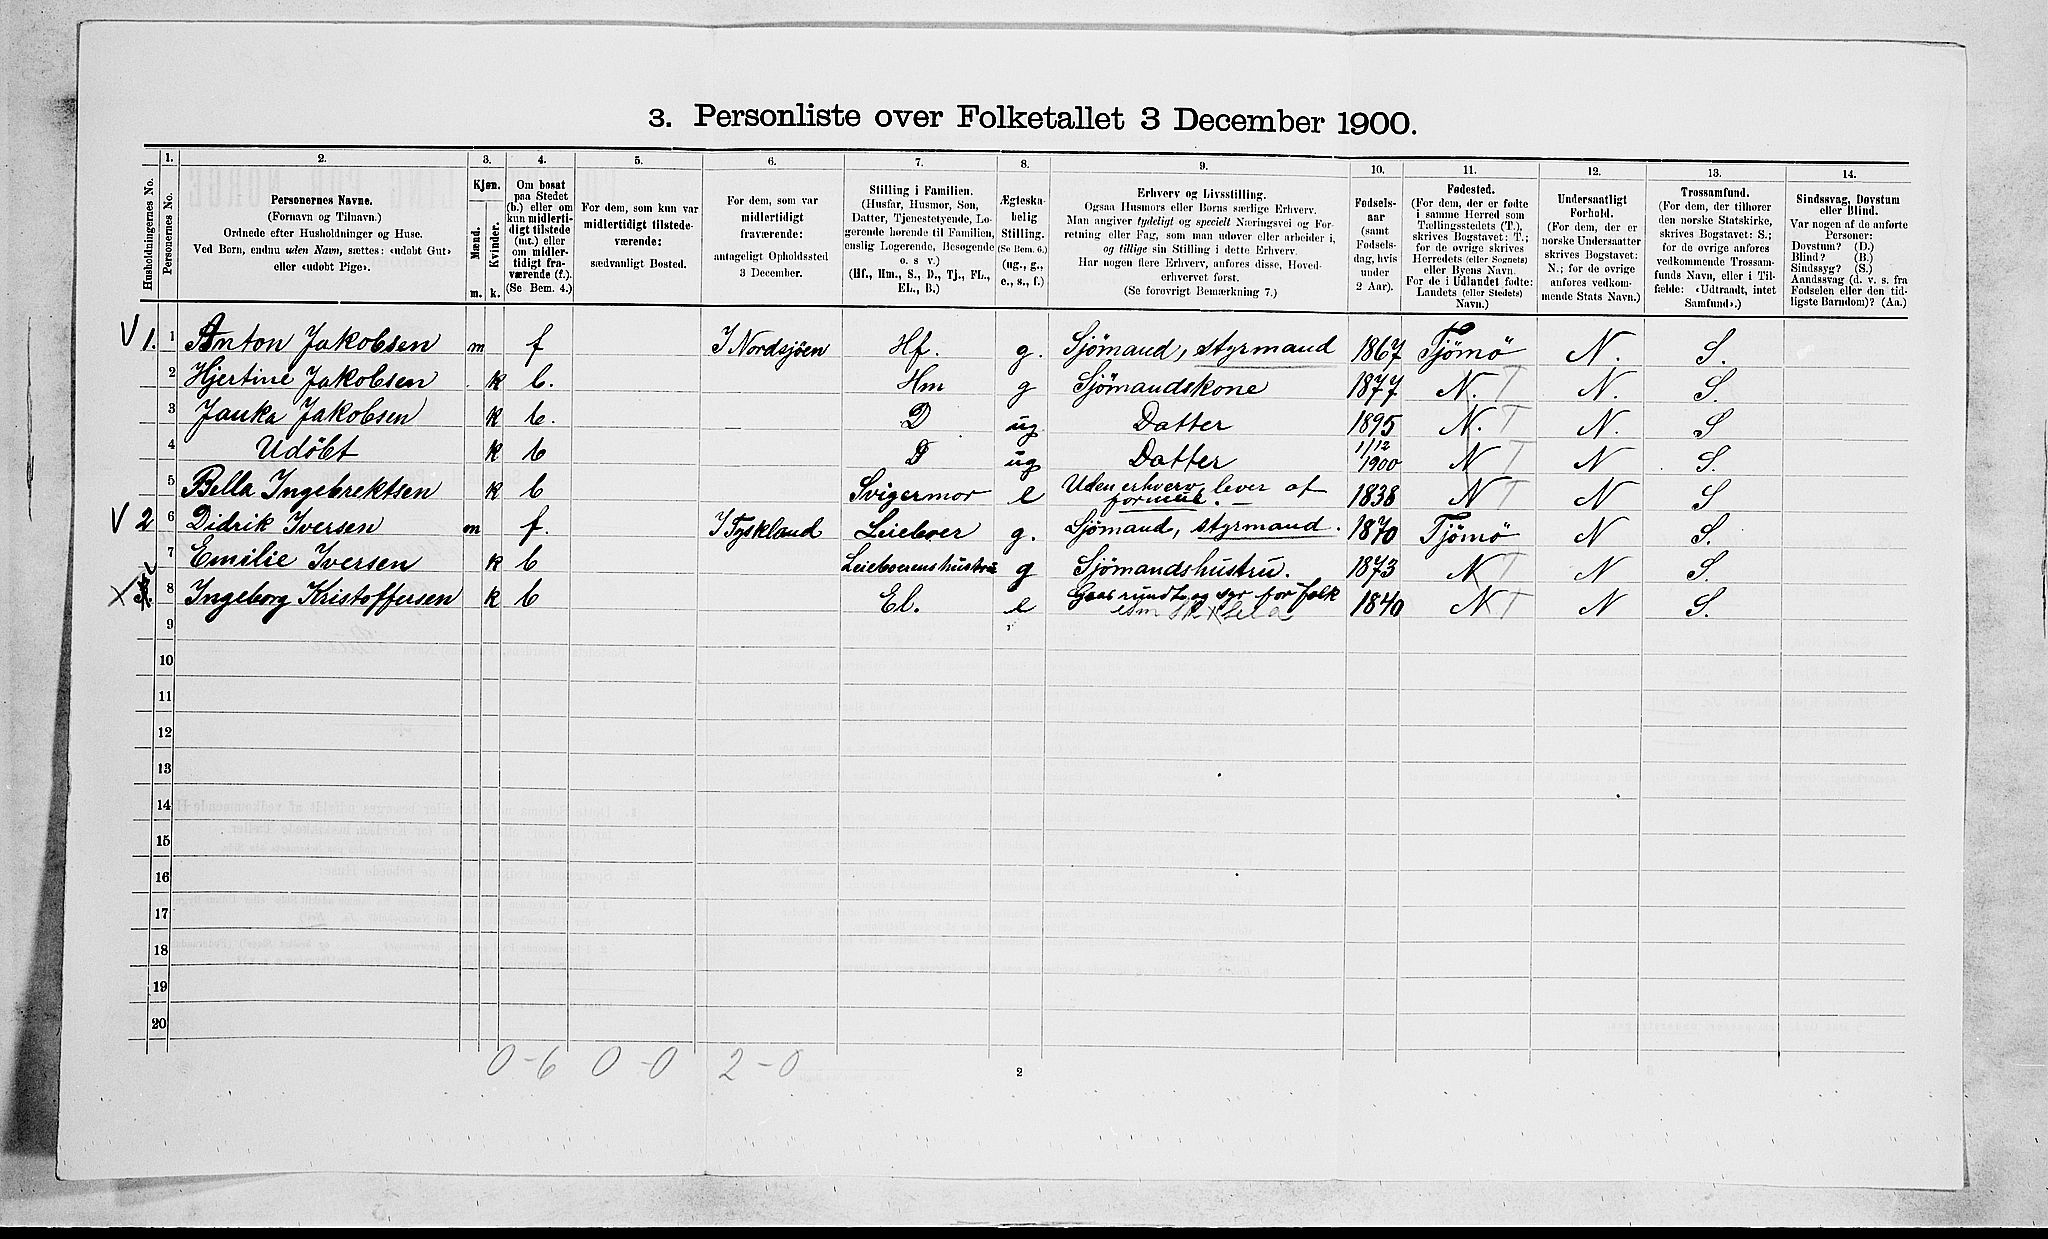 3. Personliste over Folketallet 3 December 1900.
1. 2. 3. 4. 5. 6. 7. 8. 9. 10. 11. 12. 13. 14.
Husholdningernes No.
Personernes No.
Personernes Navne.
(Fornavn og Tilnavn.)
Ordnede efter Husholdninger og Huse.
Ved Børn, endnu uden Navn, sættes: «udøbt Gut»
eller «udøbt Pige».
Kjøn.
Mænd.
Kvinder.
m. k.
Om bosat
paa Stedet
(b.) eller om
kun midlerti-
digt tilstede
(mt.) eller
om midler-
tidigt fra-
værende (f.).
(Se Bem. 4.)
For dem, som kun var
midlertidigt tilstede-
værende:
sædvanligt Bosted.
For dem, som var
midlertidigt
fraværende:
antageligt Opholdssted
3 December.
Stilling i Familien.
(Husfar, Husmor, Søn,
Datter, Tjenestetyende, Lo-
gerende hørende til Familien,
enslig Logerende, Besøgende
o. s v.)
(Hf., Hm., S., D., Tj., FL.,
EL., B.)
Ægteska-
belig
Stilling.
(Se Bem. 6.)
(ug., g.,
e., s., f.)
Erhverv og Livsstilling.
Ogsaa Husmors eller Børns særlige Erhverv.
Man angiver tydeligt og specielt Næringsvei og For-
retning eller Fag, som man udøver eller arbeider i,
og tillige sin Stilling i dette Erhverv.
Har nogen flere Erhverv, anføres disse, Hoved-
erhvervet først.
(Se forøvrigt Bemærkning 7.)
Fødsels-
aar
(samt
Fødsels-
dag, hvis
under
2 Aar).
Fødested.
(For dem, der er fødte
i samme Herred som
Tællingsstedets (T.),
skrives Bogstavet: T.;
for de øvrige skrives
Herredets (eller Sognets)
eller Byens Navn.
For de i Udlandet fødte:
Landets (eller Stedets)
Navn.)
Undersaatligt
Forhold.
(For dem, der er
norske Undersaatter
skrives Bogstavet:
N.; for de øvrige
anføres vedkom-
mende Stats Navn.)
Trossamfund.
(For dem, der tilhører
den norske Statskirke,
skrives Bogstavet: S.;
for de øvrige anføres
vedkommende Trossam-
funds Navn, eller i Til-
fælde: «Udtraadt, intet
Samfund».)
Sindssvag, Døvstum
eller Blind.
Var nogen af de anførte
Personer:
Døvstum? (D.)
Blind? (B.)
Sindssyg? (S.)
Aandssvag (d. v. s. fra
Fødselen eller den tid-
ligste Barndom)? (Aa.)
V 1. 1 Anton Jakobsen m f I Nordsjöen Hf. g. Sjömand, styrmand 1867 Tjömö N. S.
2 Hjertine Jakobsen k b. Hm g Sjömandskone 1877 N. T N. S.
3 Janka Jakobsen k b. D ug Datter 1895 N. T N. S
4 Udöbt k b D ug Datter 1/12 1900 N T N S.
5 Bella Ingebrektsen k b Svigermor e Uden erhverv, lever af
formue. 1838 N T N S
V 2 6 Didrik Iversen m f. I Tyskland Leieboer g. Sjömand, styrmand. 1870 Tjömö N S.
7 Emilie Iversen k b Leieboerens hustru g Sjömandshustru. 1873 N T N S.
8 Ingeborg Kristoffersen k b El. e Gaar rundt og syr for folk
1840 N T N S.
9
10
11
12
13
14
15
16
17
18
19
20
0-6 0-0 2-0
2